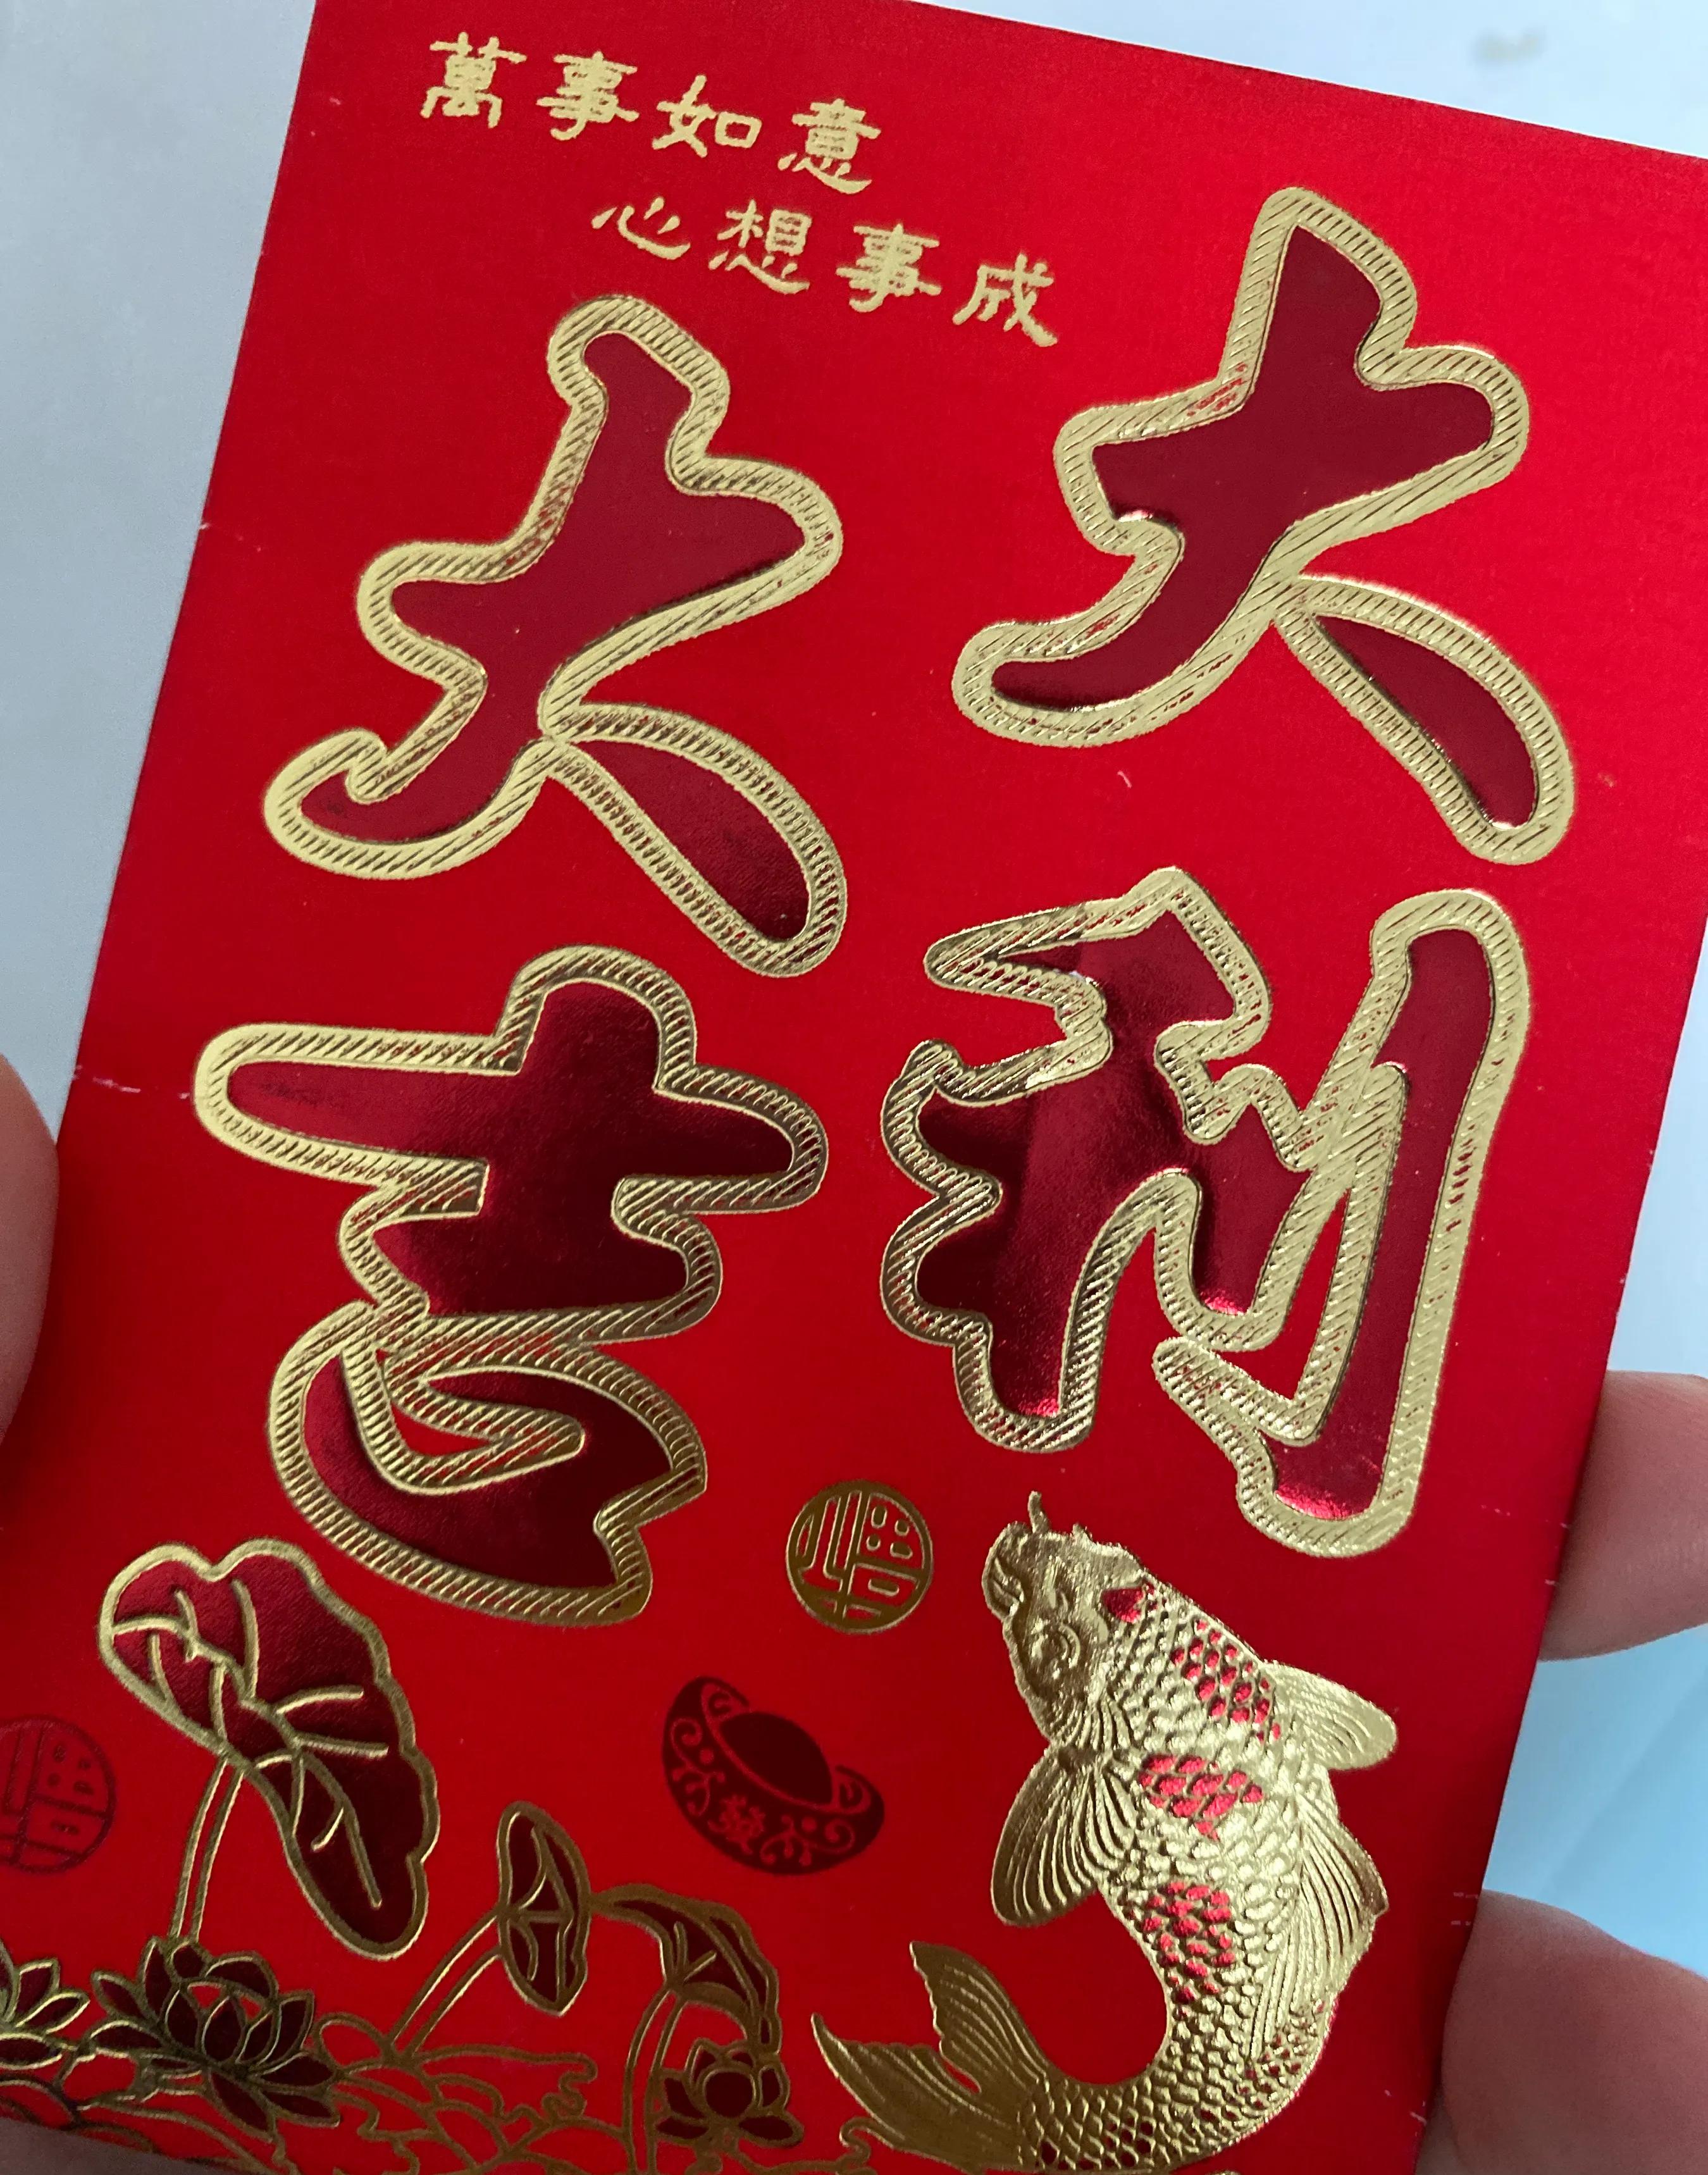 萬事如意
心想事成
大吉
大利
福
發
福